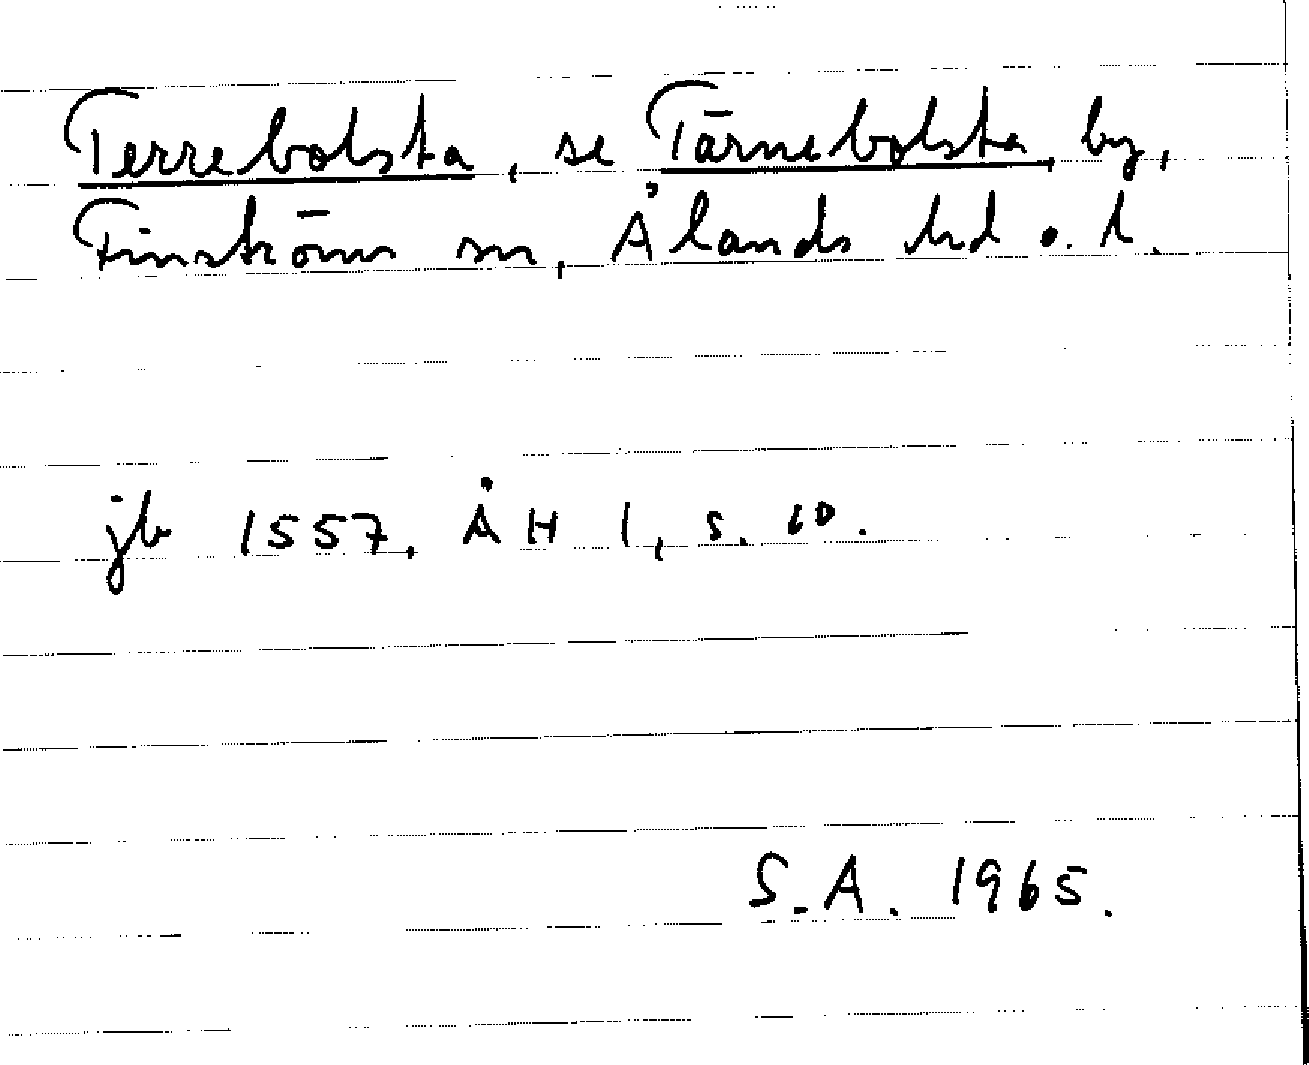 Terrebolsta, se Tärnebolsta, by,
Finströms sn, Ålands hd o. l.
jb 1557, ÅH I, s. 10.
S.A. 1965.